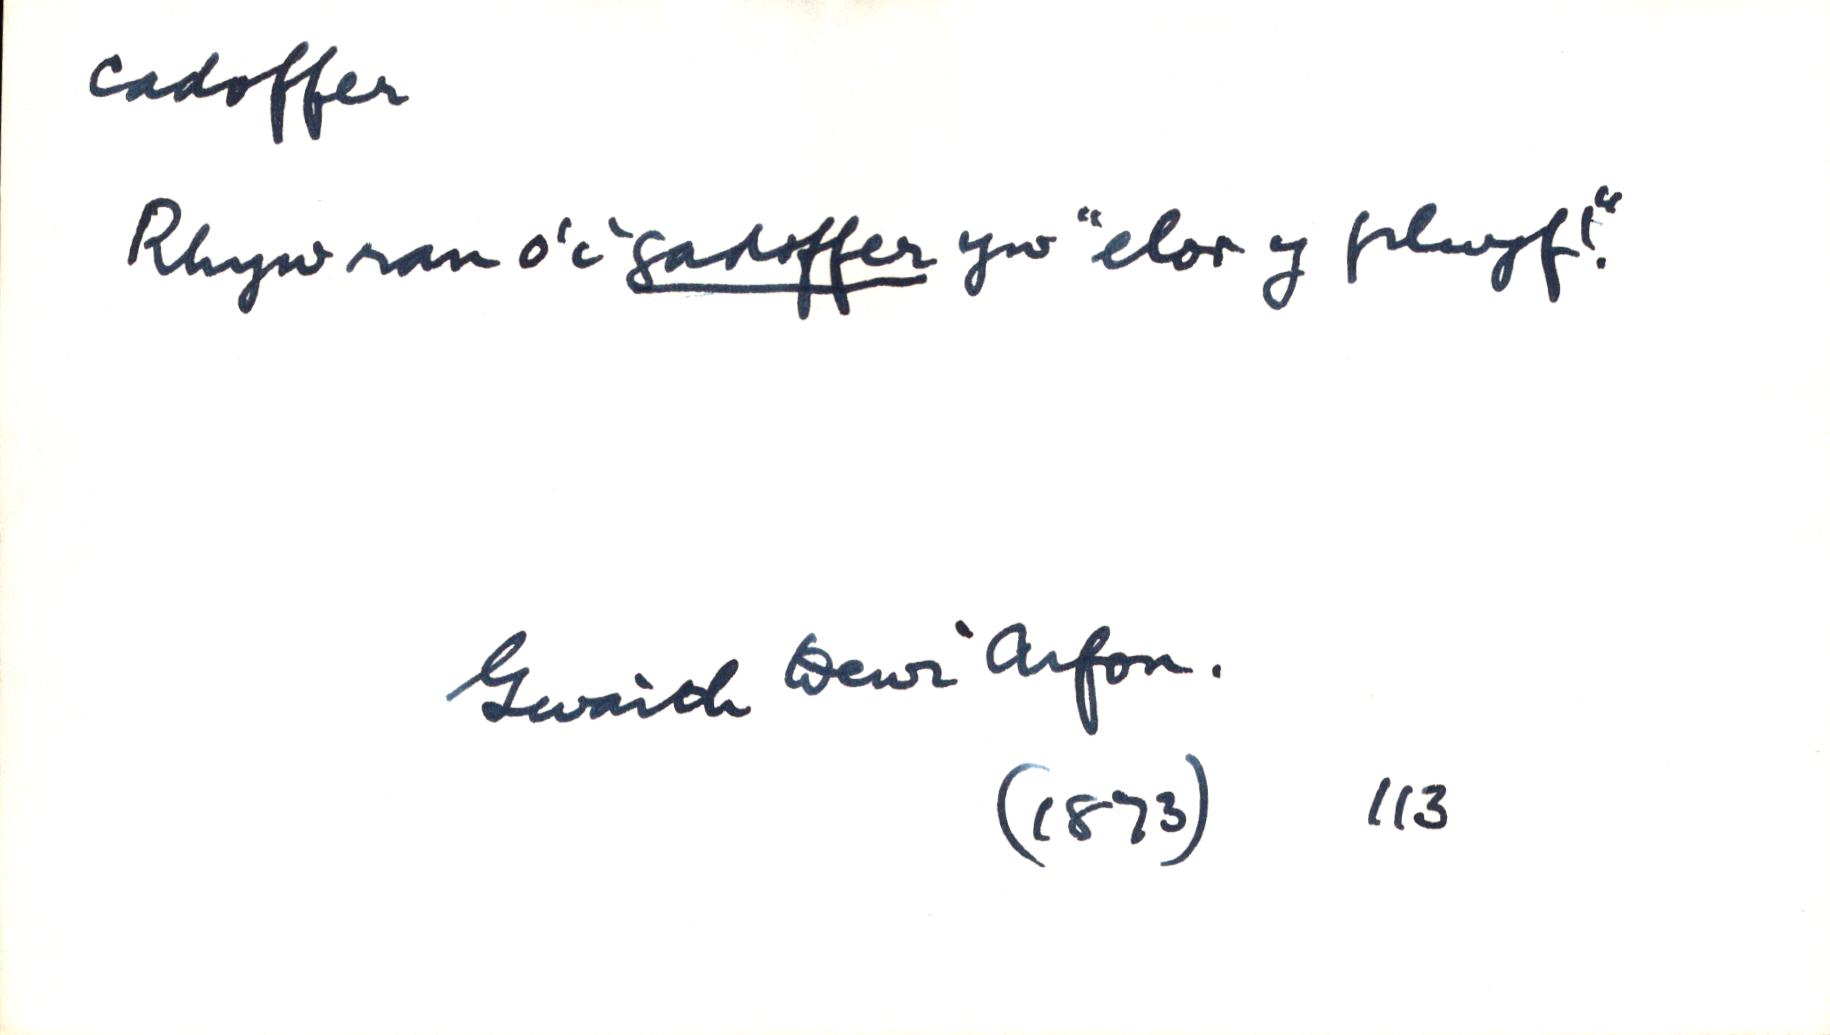 cadoffer
Rhyw ran o'i gadoffer yw "elor y plwyf!"
Gwaith Dewi Arfon.
(1873) 113